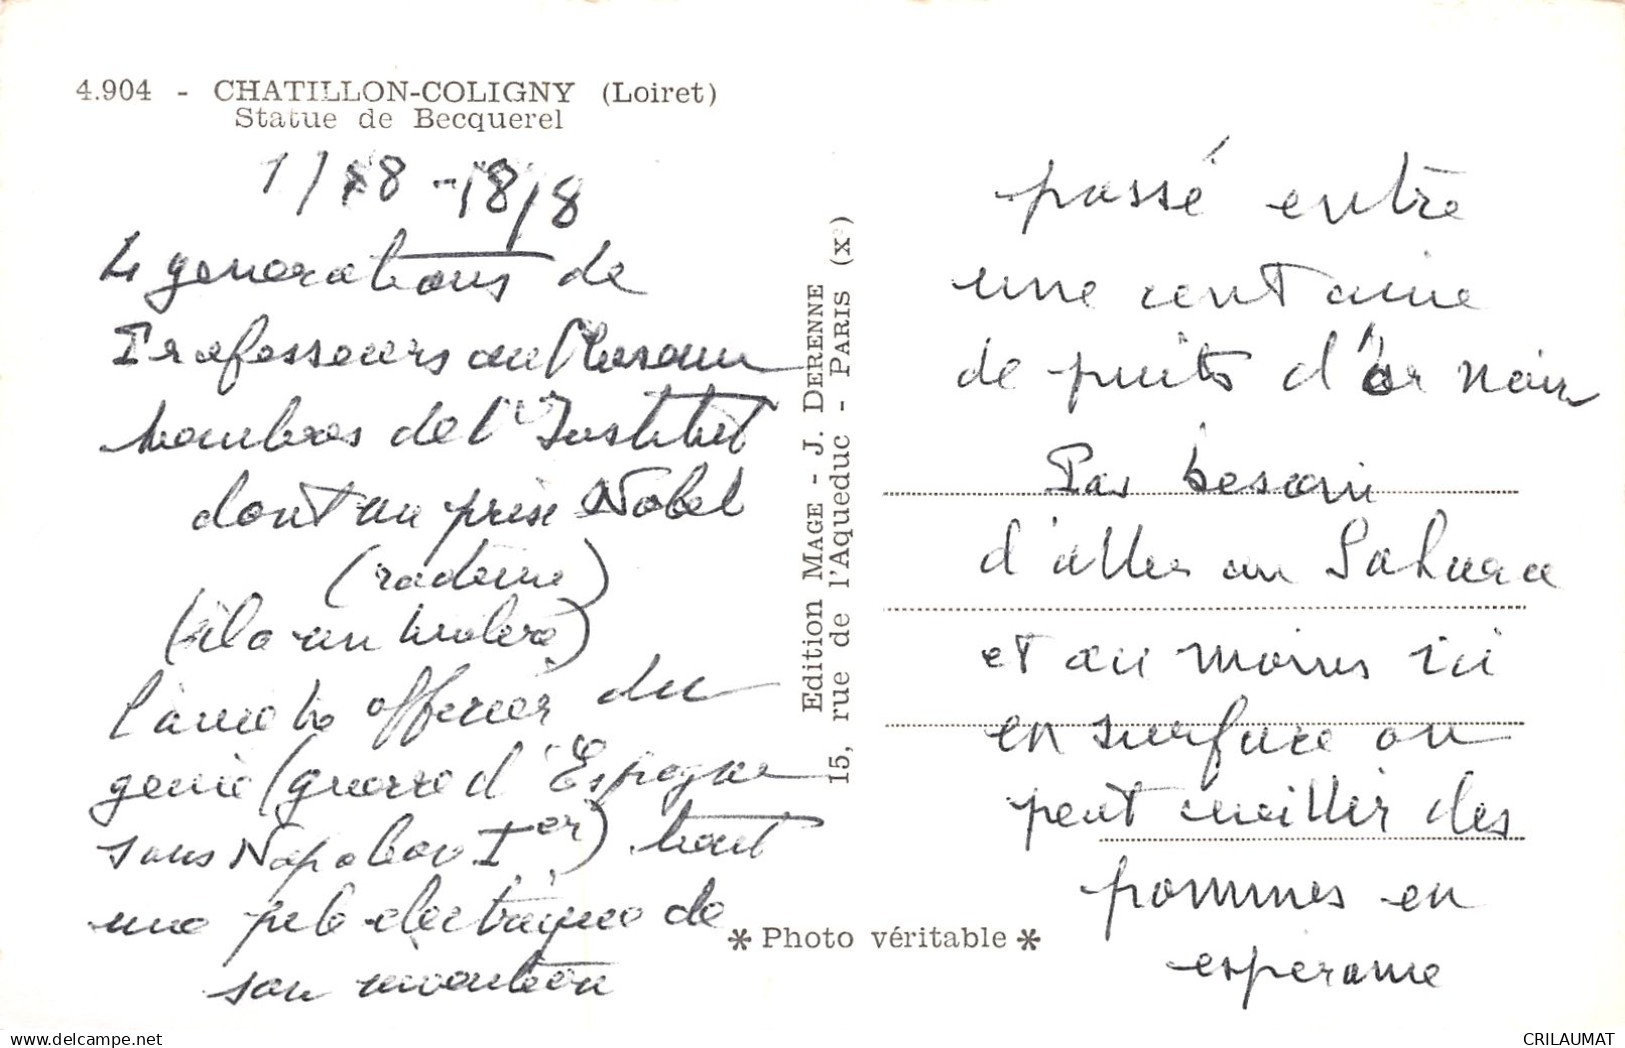 4.904 - CHATILLON-COLIGNY (Loiret)
Statue de Becquerel
18/8
4 generations de
Professeurs au Museum
membres de l'Institut
dont un prix Nobel
(radium)
(il a un
l'ancêtre officier du
genie (guerre d'Espagne
sous Napoleon Ier) tient
une pile electrique de
son invention
Edition MAGE - J. DERENNE
15, rue de l'Aqueduc - PARIS (Xe)
* Photo véritable *
passé entre
une centaine
de puits d'or noir
Pas besoin
d'aller au Sahara
et au moins ici
en surface on
peut cueillir des
pommes en
www.delcampe.net
CRILAUMAT